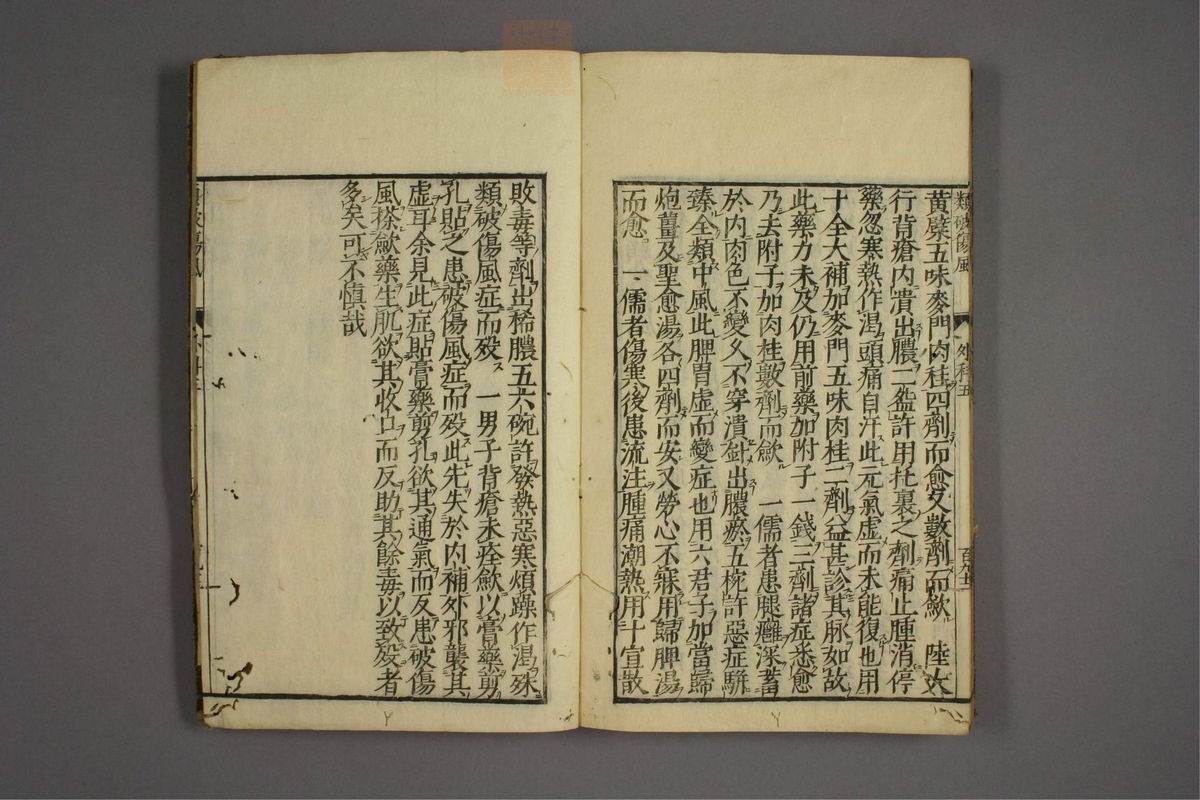 類破傷風 外科五 百九十二
黄檗五味麥門肉桂四劑而愈又數劑而歛 陸大
行背瘡内潰出膿二盌許用托裏之劑痛止腫消停
藥忽寒熱作渴頭痛自汗此元氣虚而未能復也用
十全大補加麥門五味肉桂二劑益甚診其脉如故
此藥力未及仍用前藥加附子一錢三劑諸症悉愈
乃去附子加肉桂數劑而歛 一儒者患腿癰深蓄
於内肉色不變久不穿潰針出膿瘀五椀許惡症駢
臻全類中風此脾胃虚而變症也用六君子加當歸
炮薑及聖愈湯各四劑而安又勞心不寐用歸脾湯
而愈 一儒者傷寒後患流注腫痛潮熱用十宣散
敗毒等劑出稀膿五六碗許發熱惡寒煩躁作渴殊
類破傷風症而殁 一男子背瘡未痊歛以膏藥剪
孔貼之患破傷風症而殁此先失於内補外邪襲其
虚耳余見此症貼膏藥剪孔欲其通氣而反患破傷
風搽歛藥生肌欲其收口而反助其餘毒以致殁者
多矣可不慎哉